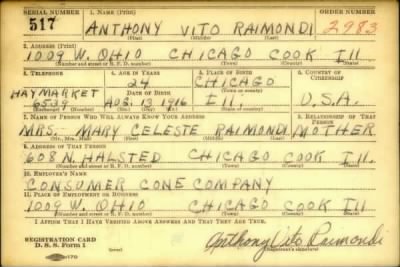 SERIAL NUMBER 1. NAME (Print) ORDER NUMBER
517 ANTHONY VITO RAIMONDI 2983
(First) (Middle) (Last)
2. ADDRESS (Print)
1009 W. OHIO CHICAGO COOK Ill.
(Number and street or R. F. D. number) (Town) (County) (State)
3. TELEPHONE 4. AGE IN YEARS 5. PLACE OF BIRTH 6. COUNTRY OF CITIZENSHIP
24 CHICAGO
HAYMARKET DATE OF BIRTH (Town or county)
6539 AUG. 13, 1916 Ill. U.S.A.
(Exchange) (Number) (Mo.) (Day) (Yr.) (State or country)
7. NAME OF PERSON WHO WILL ALWAYS KNOW YOUR ADDRESS 8. RELATIONSHIP OF THAT PERSON
MRS. MARY CELESTE RAIMONDI MOTHER
(Mr., Mrs., Miss) (First) (Middle) (Last)
9. ADDRESS OF THAT PERSON
608 N. HALSTED CHICAGO COOK Ill.
(Number and street or R. F. D. number) (Town) (County) (State)
10. EMPLOYER'S NAME
CONSUMER CONE COMPANY
11. PLACE OF EMPLOYMENT OR BUSINESS
1009 W. OHIO CHICAGO COOK Ill.
(Number and street or R. F. D. number) (Town) (County) (State)
I AFFIRM THAT I HAVE VERIFIED ABOVE ANSWERS AND THAT THEY ARE TRUE.
REGISTRATION CARD
D. S. S. Form 1 Anthony Vito Raimondi
(Registrant's signature)